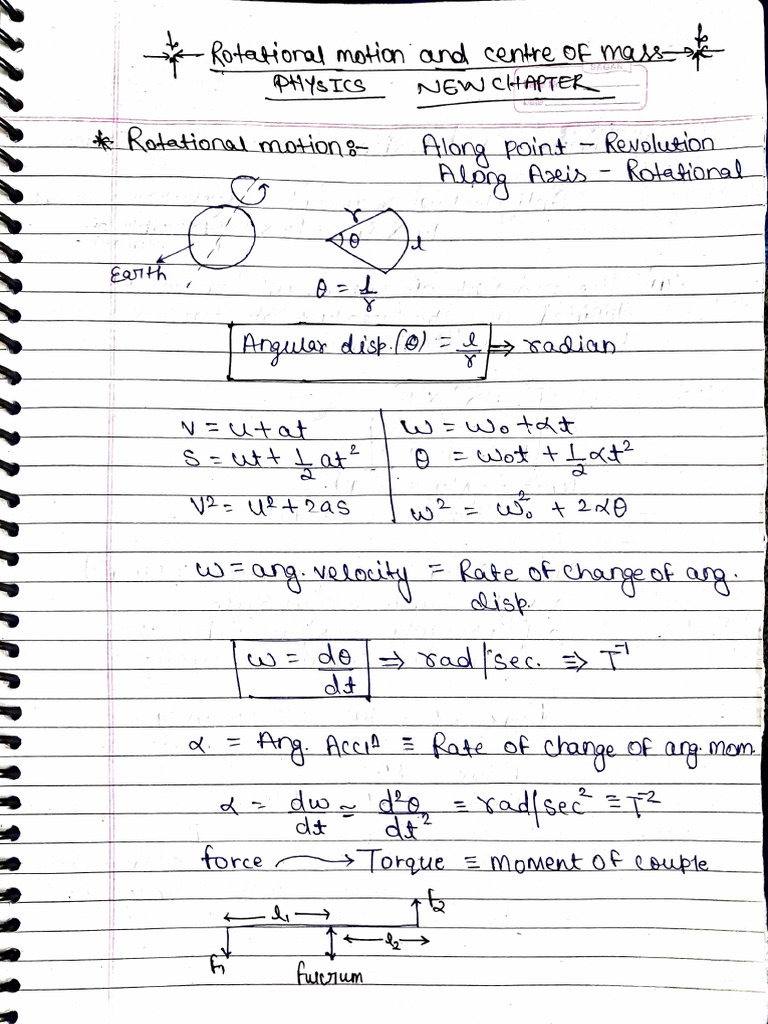 Rotational motion and centre of mass
PHYSICS NEW CHAPTER
* Rotational motion:- Along point - Revolution
Along Axis - Rotational
r θ l
Earth
θ = l/r
Angular disp. (θ) = l/r ⇒ radian
V = u + at | ω = ω₀ + αt
S = ut + 1/2 at² | θ = ω₀t + 1/2 αt²
V² = u² + 2as | ω² = ω₀² + 2αθ
ω = ang. velocity = Rate of change of ang.
disp.
ω = dθ/dt ⇒ rad/sec. ⇒ T⁻¹
α = Ang. Accⁿ ≡ Rate of change of ang. mom.
α = dω/dt = d²θ/dt² ≡ rad/sec² ≡ T⁻²
force → Torque ≡ moment of couple
l₁ f₂
l₂
f₁ fulcrum